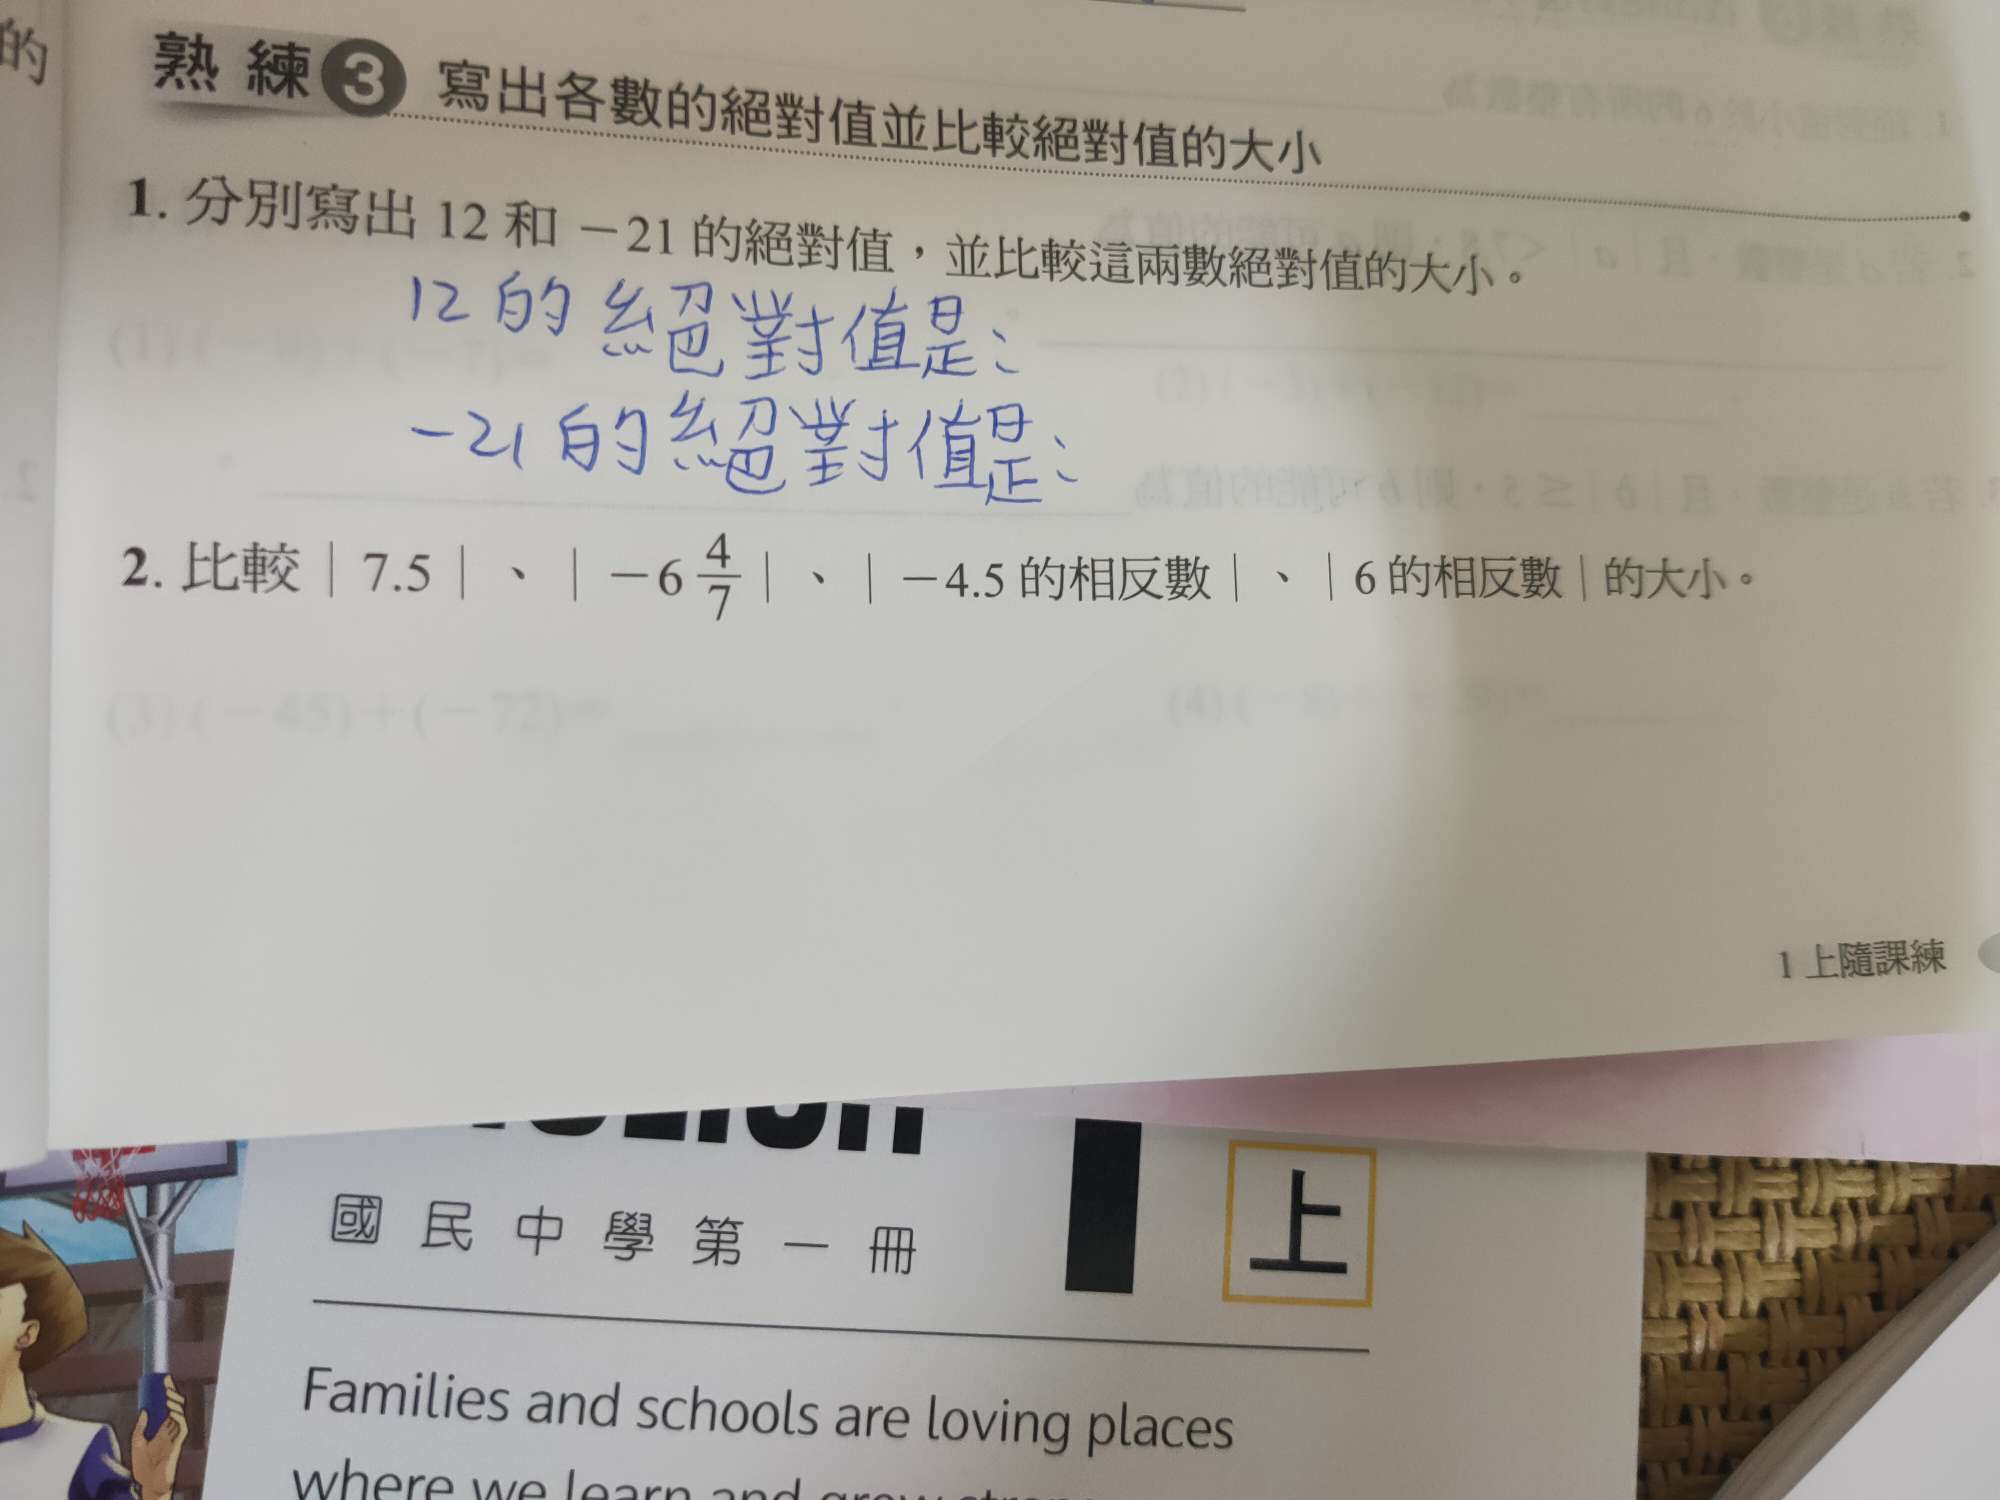 的
熟練3 寫出各數的絕對值並比較絕對值的大小
1. 分別寫出 12 和 −21 的絕對值，並比較這兩數絕對值的大小。
12的絕對值是：
-21的絕對值是：
2. 比較｜7.5｜、｜−6 4/7｜、｜−4.5 的相反數｜、｜6 的相反數｜的大小。
(3) (−45)+(−72)=
1 上隨課練
國民中學第一冊 1 上
Families and schools are loving places
where we learn and grow